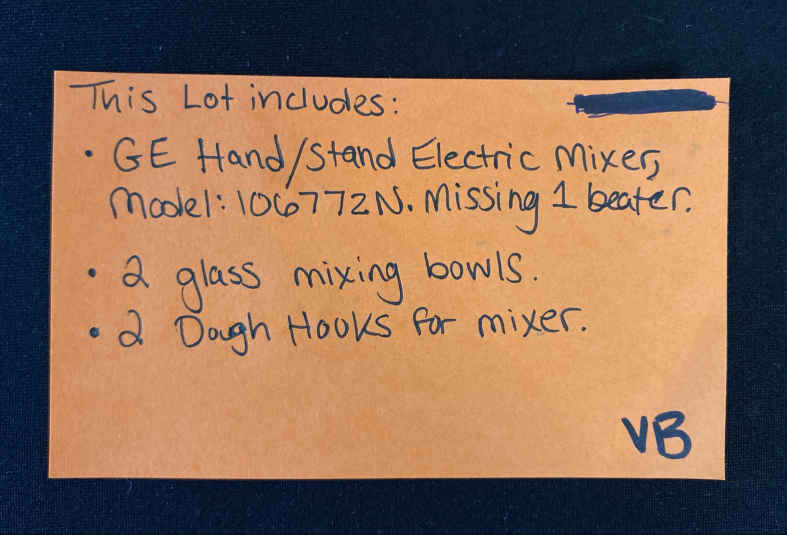 This Lot includes:
• GE Hand/Stand Electric Mixer,
Model: 106772N. Missing 1 beater.
• 2 glass mixing bowls.
• 2 Dough Hooks for mixer.
VB